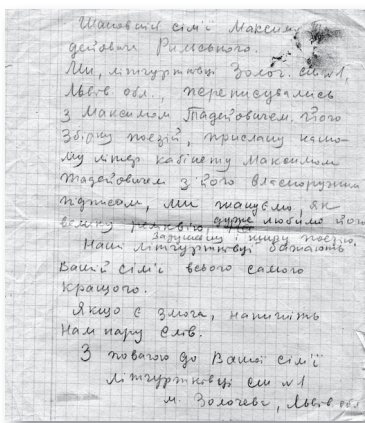 Шановній сім'ї Максима Та
дейовича Рильського.
Ми, літгуртківці Золоч. СШ №1,
Львів. обл., переписувались
з Максимом Тадейовичем. Його
збірку поезій, прислану нашо-
му літер кабінету Максимом
Тадейовичем з його власноручним
підписом, ми шануємо, як
велику реліквію, дуже любимо його
задушевну і щиру поезію.
Наші літгуртківці бажають
Вашій сім'ї всього самого
кращого.
Якщо є змога, напишіть
нам пару слів.
З повагою до Вашої сім'ї
літгуртківці СШ №1
м. Золочева, Львів. обл